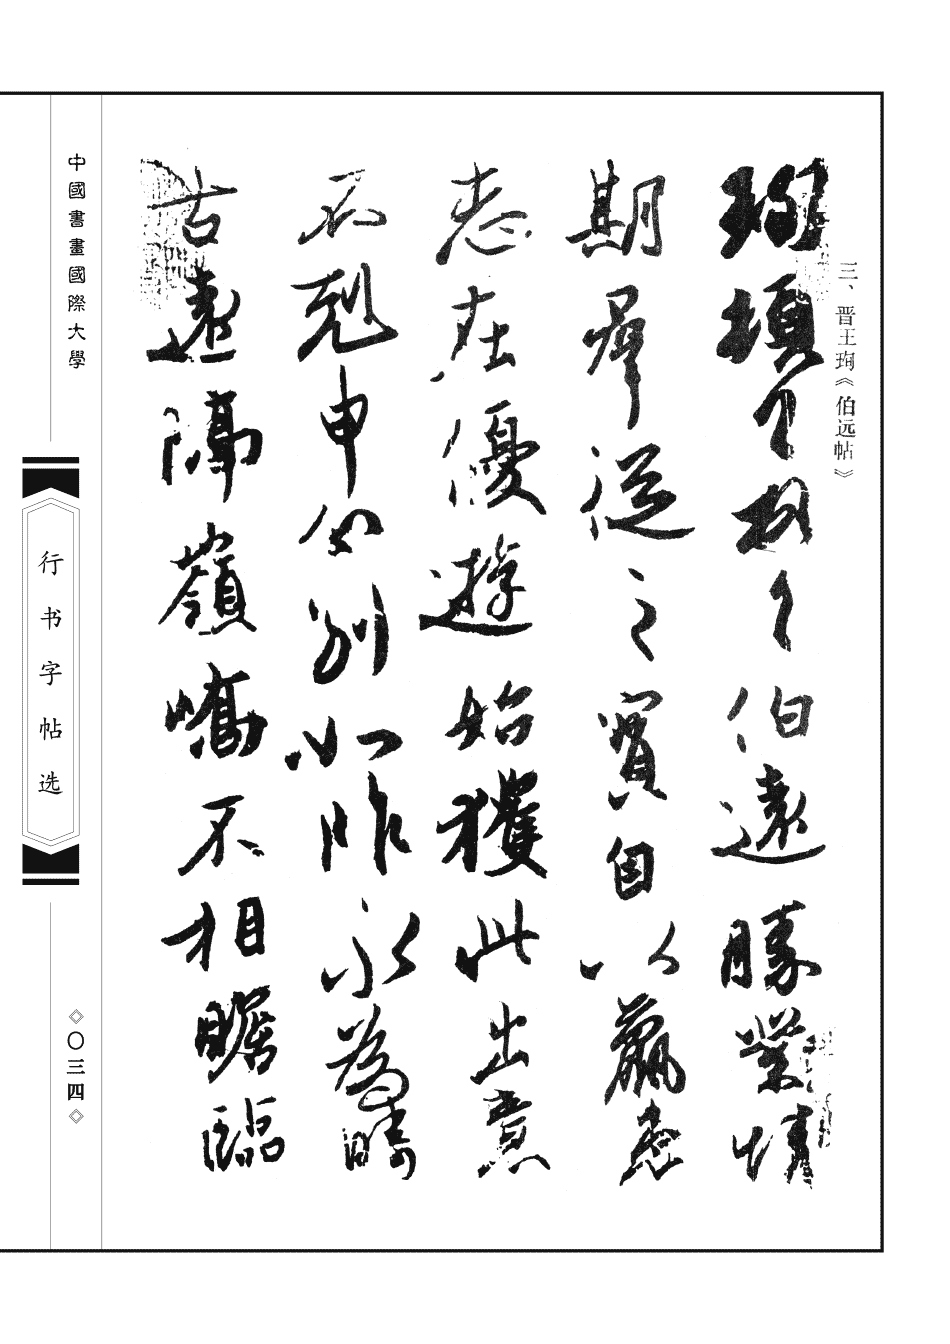 三、晋王珣《伯远帖》
珣頓首頓首伯遠勝業情
期羣從之寶自以羸患
志在優遊始獲此出意
不剋申分別如昨永為疇
古遠隔嶺嶠不相瞻臨
中國書畫國際大學
行书字帖选
〇三四